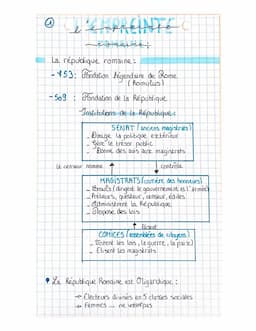 ①
L'EMPREINTE
romaine:
La république romaine:
- -753: Fondation légendaire de Rome
(Romulus)
- -509: Fondation de la République
Institutions de la République:
SENAT (anciens magistrats)
- Dirige la politique extérieure
- Gère le trésor public
- Donne des avis aux magistrats
Le censeur nomme
contrôle
MAGISTRATS (carrière des honneurs)
- Consuls (dirigent le gouvernement et l'armée)
- Préteurs, questeurs, censeurs, édiles
- Administrent la République
- Propose des lois
élisent
COMICES (assemblées de citoyens)
- Votent les lois, la guerre, la paix)
- Elisent les magistrats
La République Romaine est Oligarchique:
→ Electeurs divisés en 5 classes sociales
→ Femmes → ne votent pas